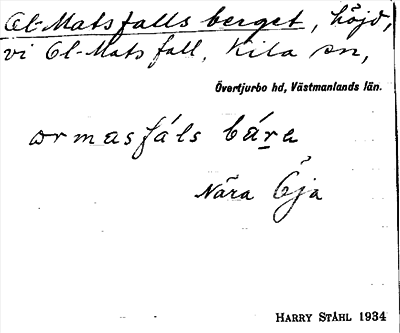 Ol-Matsfallsberget, höjd,
vi Ol-Mats fall, Kila sn,
Övertjurbo hd, Västmanlands län.
ormasfáls bárẹ
Nära Öja
HARRY STÅHL 1934